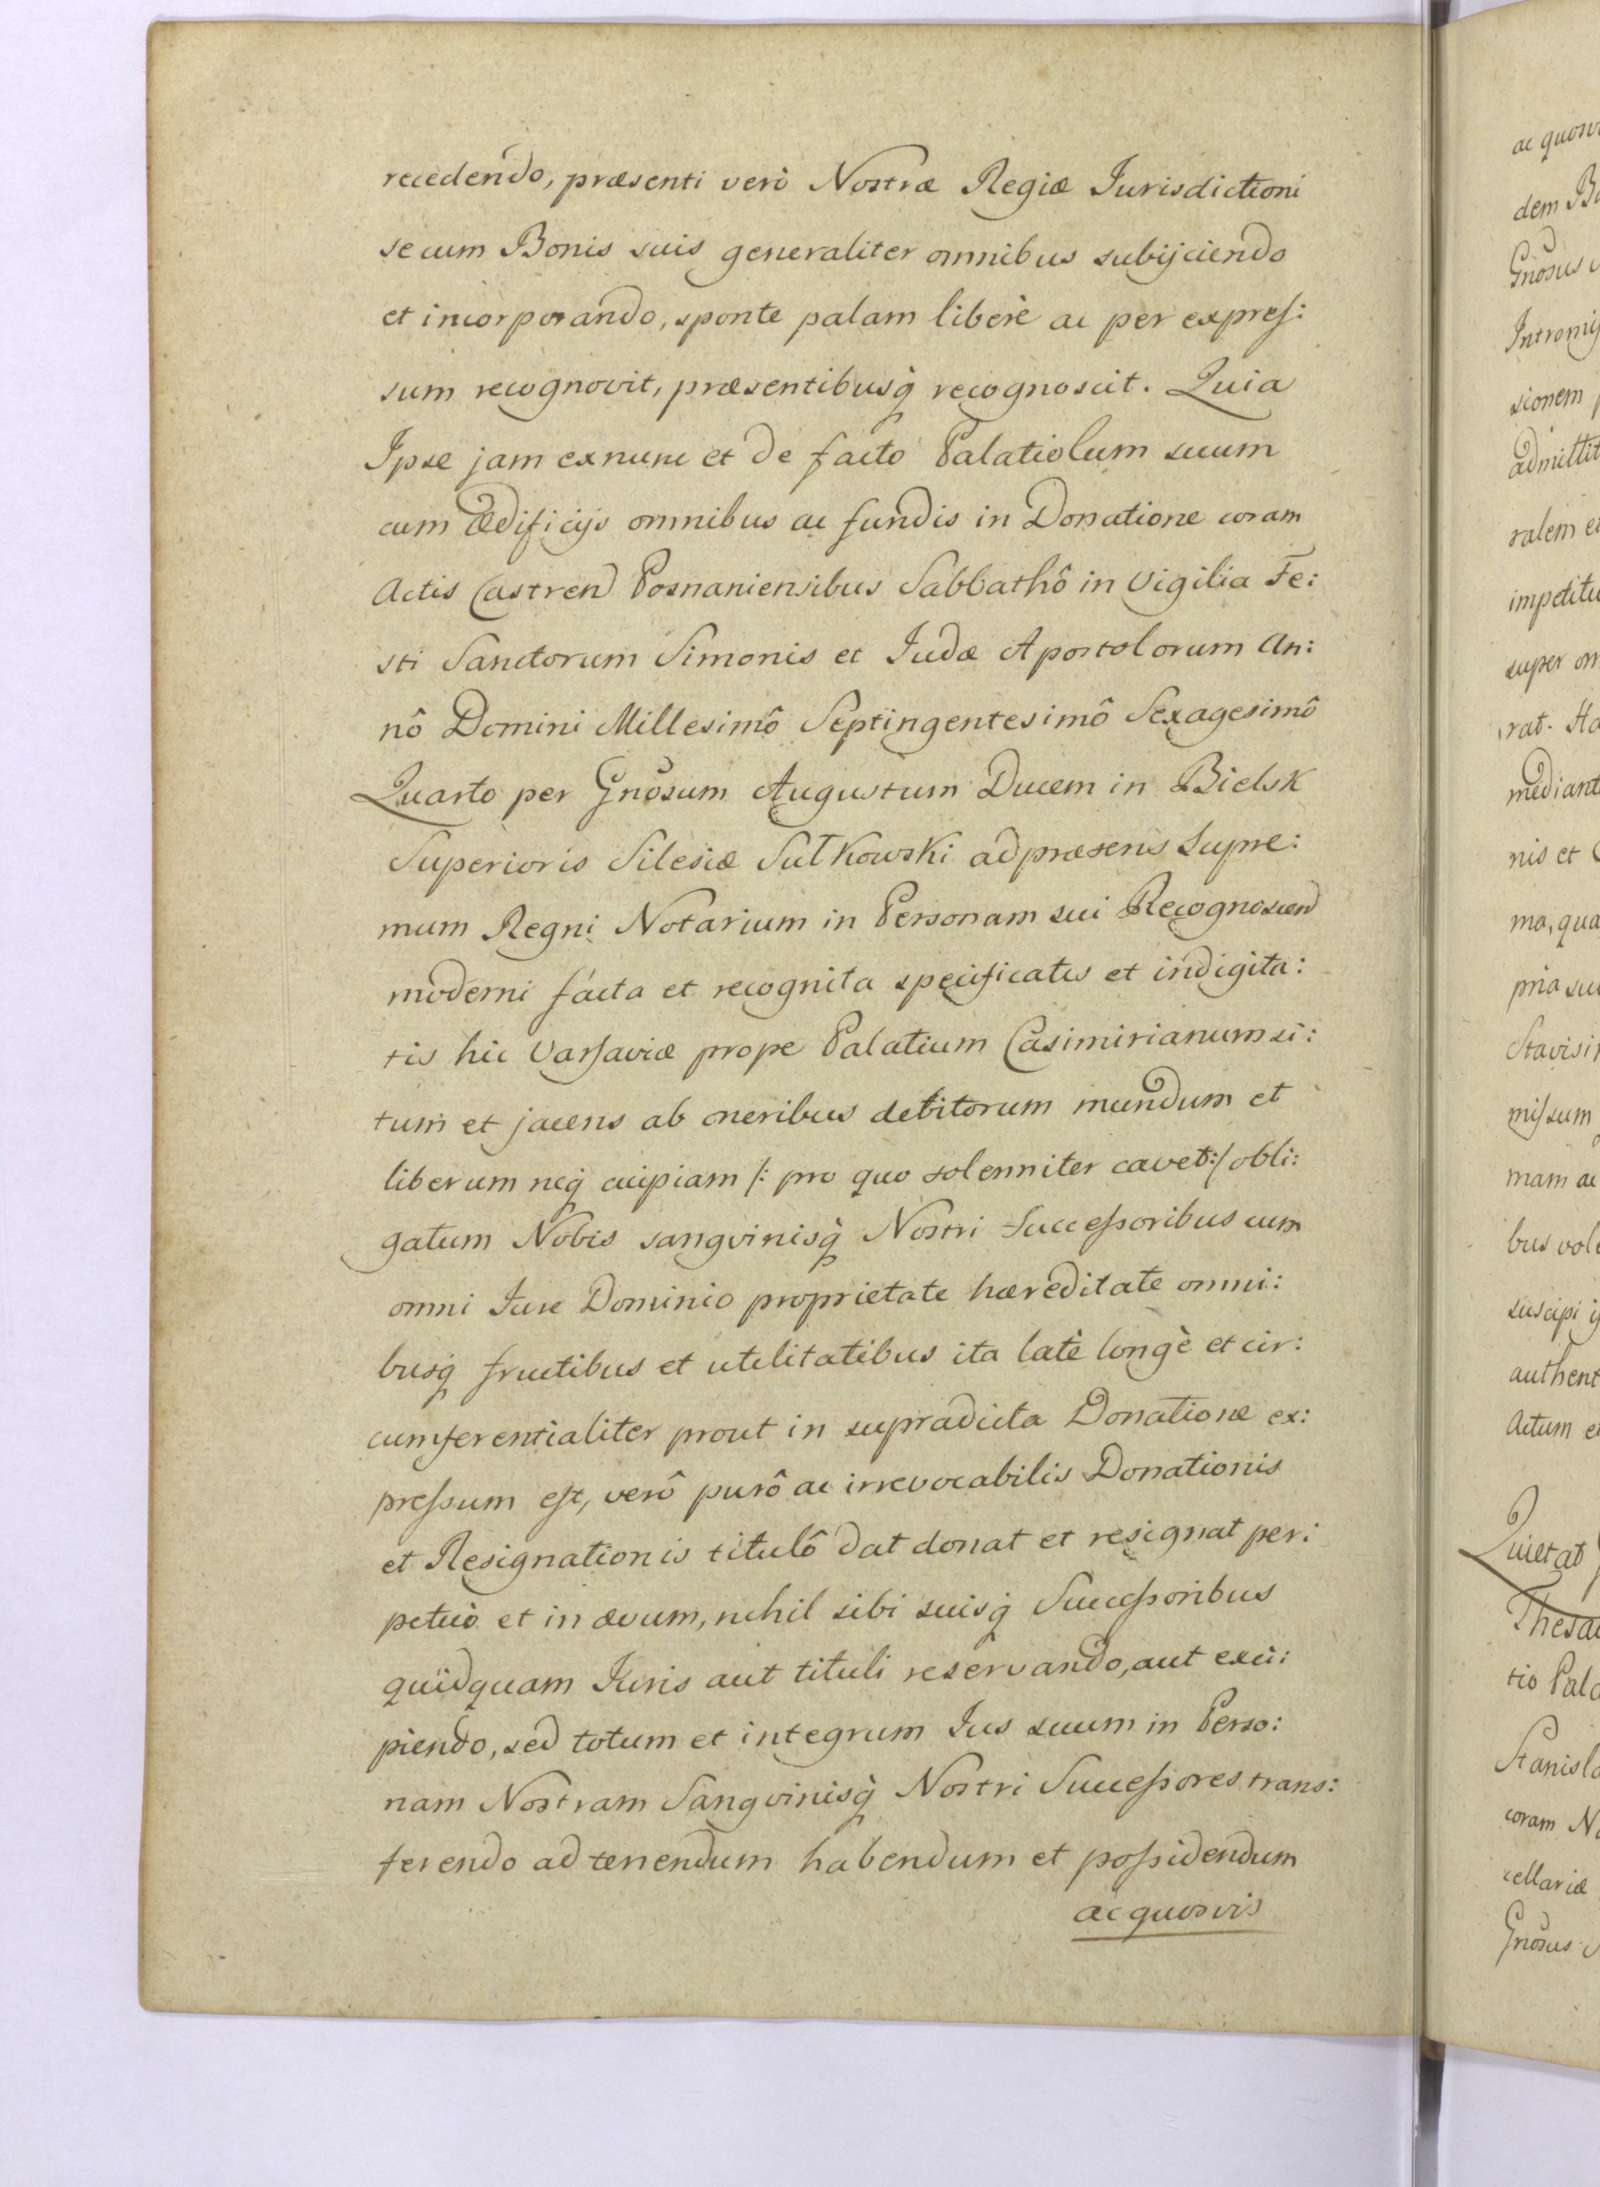 recedendo, præsenti verò Nostræ Regiæ Iurisdictioni
se cum Bonis suis generaliter omnibus subijciendo
et incorporando, sponte palam liberè ac per expreſ:
sum recognovit, præsentibusq̀ recognoscit. Quia
Ipse jam exnunc et de facto Palatiolum suum
cum Ædificijs omnibus ac fundis in Donatione coram
Actis Castren Posnaniensibus Sabbathô in Vigilia Fe:
sti Sanctorum Simonis et Iudæ Apostolorum An:
nô Domini Millesimô Septingentesimô Sexagesimô
Quarto per Gnosum Augustum Ducem in Bielsk
Superioris Silesiæ Sułkowski ad præsens Supre:
mum Regni Notarium in Personam sui Recognoscen
moderni facta et recognita specificatis et indigita:
tis hic Varſaviæ prope Palatium Casimirianum si:
tum et jacens ab oneribus debitorum mundum et
liberum neq̀ cuipiam /: pro quo solenniter cavet :/ obli:
gatum Nobis sangvinisq̀ Nostri Succeſsoribus cum
omni Iure Dominio proprietate hæreditate omni:
busq̀ fructibus et utilitatibus ita latè longè et cir:
cumferentialiter prout in supradicta Donatione ex:
preſsum eſt, verô purô ac irrevocabilis Donationis
et Resignationis titulô dat donat et resignat per:
petuò et in ævum, nihil sibi suisq̀ Succeſsoribus
quidquam Iuris aut tituli reservando, aut exci:
piendo, sed totum et integrum Ius suum in Perso:
nam Nostram Sangvinisq̀ Nostri Succeſsores trans:
ferendo ad tenendum habendum et poſsidendum
ac quosvis
ac quosv
dem
Gnosus
Intromiſ
sionem
admittit
ralem
impetitu
super om
rat.
mediant
nis et
ma, qua
pria su
Stavisi
miſsum
mam ac
bus vol
suscipi
authent
Actum e
Quietat
Thesa
tio Pala
Stanisla
coram N
cellariæ
Gnosus